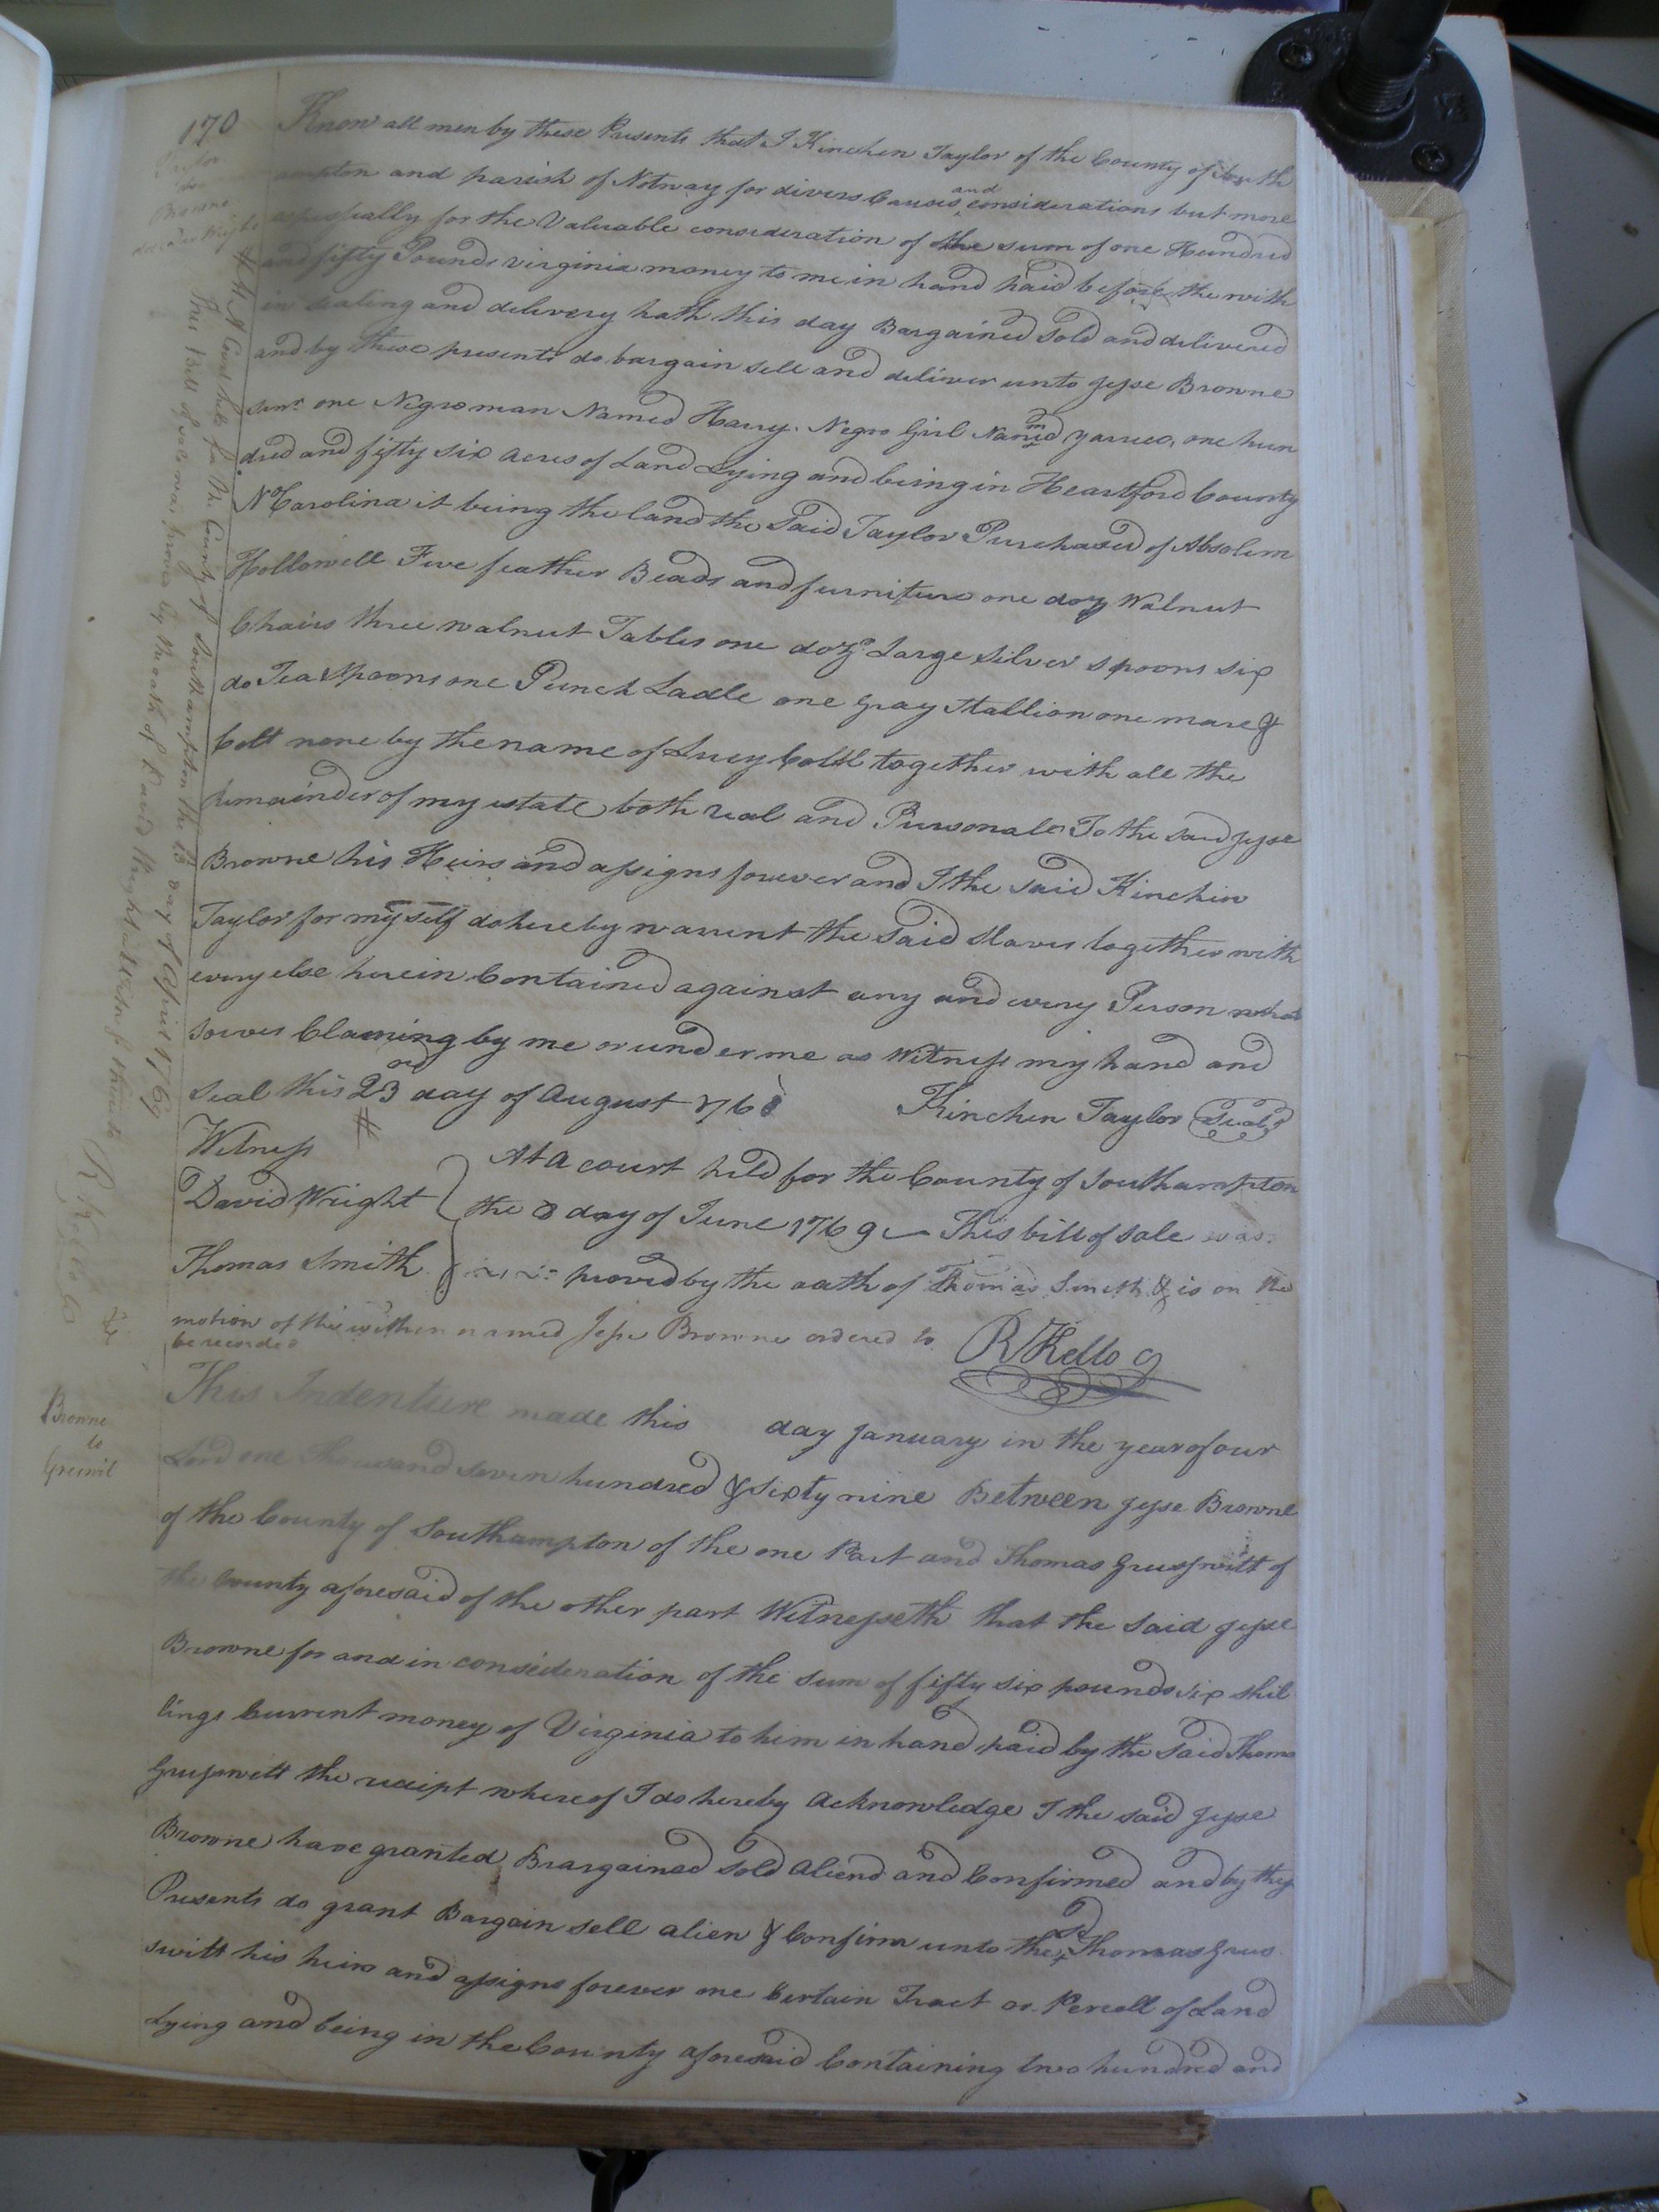 170
Know all men by these Presents that I Kinchen Taylor of the County of South
ampton and parish of Notway for divers Causes and considerations but more
especially for the Valuable consideration of the sum of one Hundred
and fifty Pounds virginia money to me in hand paid before the with
in sealing and delivery hath this day Bargained Sold and delivered
and by these presents do bargain sell and deliver unto Jesse Browne
Senr. one Negro man Named Harry. Negro Girl Named one hun
dred and fifty six acres of Land Lying and being in Heartford County
No Carolina it being the land the Said Taylor Purchased of Absolem
Hollowell Five feather Beads and furniture one doz Walnut
Chairs three walnut Tables one doz. Large silver spoons six
do Tea Spoons one Punch Ladle one gray Stallion one mare &
Colt none by the name of Lucy Colt together with all the
remainder of my estate both real and Personale To the said Jesse
Browne his Heirs and assigns forever and I the said Kinchin
Taylor for my self do hereby warrent the Said Slaves together with
every else herein Contained against any and every Person what
soever Claming by me or under me as Witness my hand and
seal this 23rd day of August 1768 Kinchen Taylor Seal
Witness
David Wright
Thomas Smith
At a court held for the County of Southampton
the 8 day of June 1769 This bill of sale was
proved by the oath of Thomas Smith & is on the
motion of the within named Jesse Browne ordered to
be recorded
R Kello
# At a Court held for the County of Southampton the 13 day of April 1769
This Bill of sale was proved by the oath of David Wright
R Kello
Browne
to
This Indenture made this day January in the year of our
Lord one thousand seven hundred & sixty nine Between Jesse Browne
of the County of Southampton of the one Part and Thomas Gresswitt of
the County aforesaid of the other part Witnesseth that the said Jesse
Browne for and in consideration of the sum of fifty six pounds six shil
lings Current money of Virginia to him in hand paid by the Said Thoms
Gresswitt the receipt whereof I do hereby acknowledge I the said Jesse
Browne have granted Brargained Sold aliend and Confirmed and by thes
Presents do grant Bargain sell alien & Confirm unto the sd Thomas Gres
switt his heirs and assigns forever one Certain Tract or Percell of Land
Lying and being in the County aforesaid Containing two hundred and